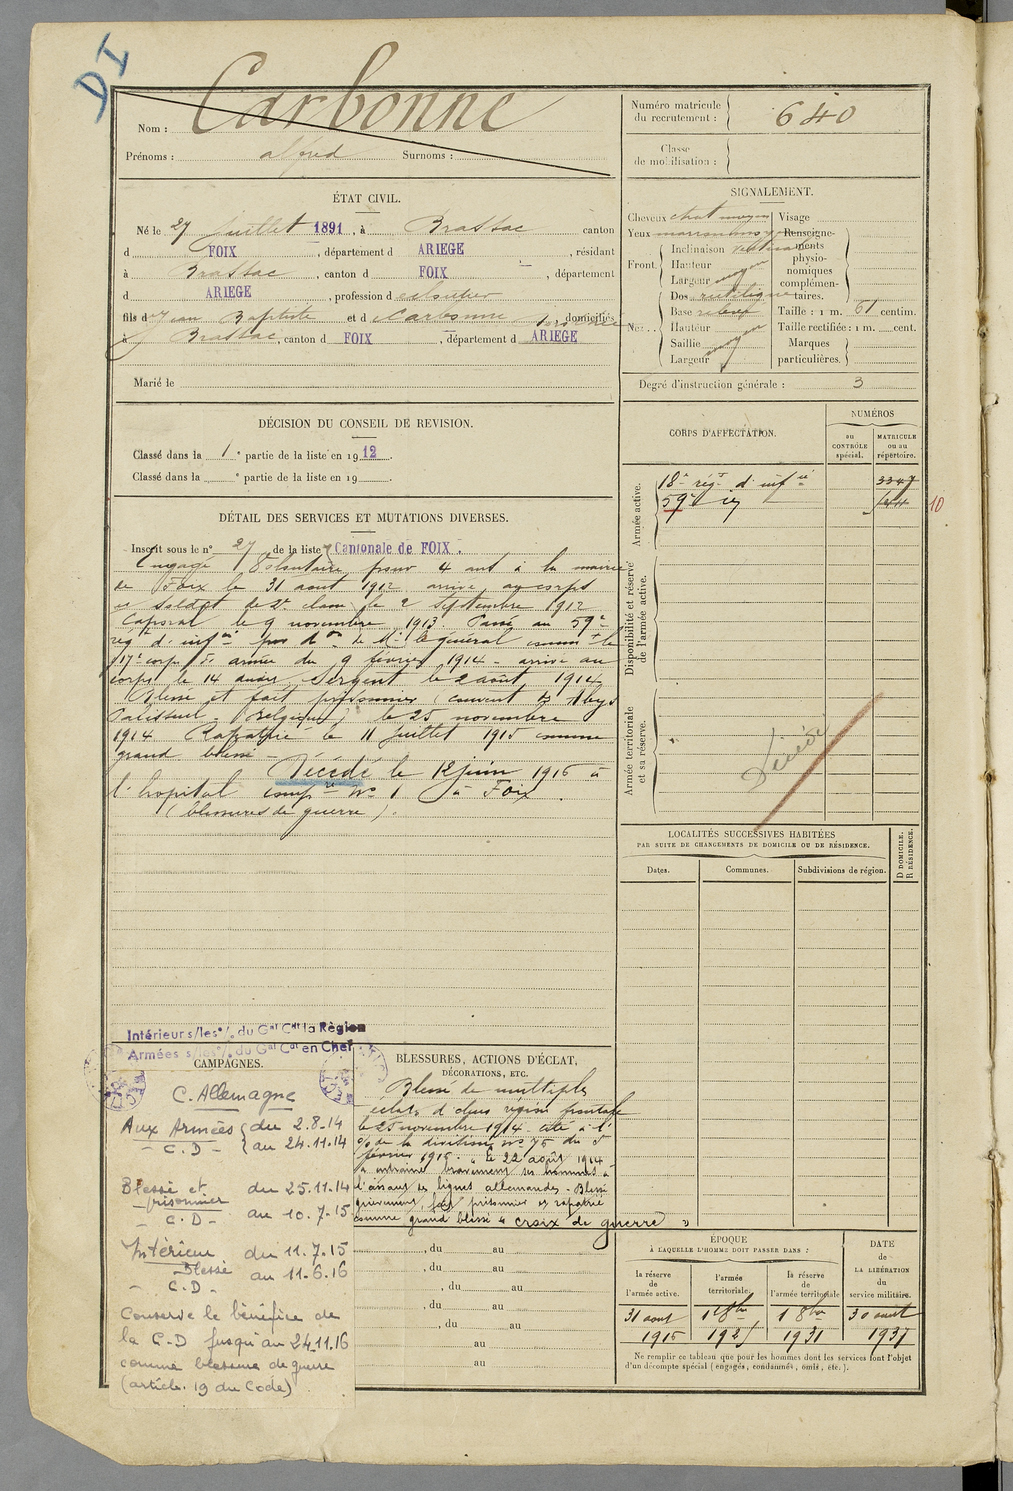 DI
Nom : Carbonne
Prénoms : alfred Surnoms :
Numéro matricule du recrutement : 640
Classe de mobilisation :
ÉTAT CIVIL.
Né le 27 Juillet 1891, à Brassac canton
d FOIX, département d ARIEGE, résidant
à Brassac, canton d FOIX, département
d ARIEGE, profession d
fils de Jean Baptiste et d Carbonne domiciliés
à Brassac, canton d FOIX, département d ARIEGE
Marié le
SIGNALEMENT.
Cheveux chat moyen Visage
Yeux marron moyen Renseignements physionomiques complémentaires.
Front. Inclinaison verticale
Hauteur
Largeur moyen
Nez. Dos rectiligne
Base relevée Taille : 1 m. 61 centim.
Hauteur Taille rectifiée : 1 m. cent.
Saillie moyen Marques particulières.
Largeur
Degré d'instruction générale : 3
DÉCISION DU CONSEIL DE REVISION.
Classé dans la 1e partie de la liste en 1912.
Classé dans la e partie de la liste en 19 .
CORPS D'AFFECTATION.
NUMÉROS
au CONTRÔLE spécial.
MATRICULE ou au répertoire.
Armée active.
18e régt d'infie 3347
59e 10
Disponibilité et réserve de l'armée active.
Armée territoriale et sa réserve.
DÉTAIL DES SERVICES ET MUTATIONS DIVERSES.
Inscrit sous le n° 27 de la liste Cantonale de FOIX.
Engagé Volontaire pour 4 ans à la mairie
de Foix le 31 aout 1912 arrivé au corps
et soldat de 2e classe le 2 Septembre 1912
Caporal le 9 novembre 1913. Passé au 59e
régt d'infie par don de Mr le général commt le
17e corps d'armée du 9 février 1914 - arrivé au
corps le 14 dudit, Sergent le 2 août 1914
Blessé et fait prisonnier (couvent
Paliseul - Belgique) le 25 novembre
1914 Rapatrié le 11 Juillet 1915 comme
grand blessé
Décédé le 12 juin 1916 à
l'hopital compre n° 1 à Foix.
(blessures de guerre).
LOCALITÉS SUCCESSIVES HABITÉES
PAR SUITE DE CHANGEMENTS DE DOMICILE OU DE RÉSIDENCE.
Dates. Communes. Subdivisions de région. D DOMICILE. R RÉSIDENCE.
Intérieur s/les °/. du Gal Cdt la Région
Armées s/les °/. du Gal Cdt en Chef
CAMPAGNES.
C. Allemagne
Aux Armées du 2.8.14
- C.D - au 24.11.14
Blessé et prisonnier du 25.11.14
- C.D - au 10.7.15
Intérieur du 11.7.15
Blessé au 11.6.16
- C.D -
Conserve le bénéfice de
la C-D jusqu'au 24.11.16
comme blessure de guerre
(article. 19 du Code)
BLESSURES, ACTIONS D'ÉCLAT, DÉCORATIONS, ETC.
Blessé de multiples
eclats d'obus région frontale
le 25 novembre 1914 - cité à l'
o/ de la division n° 75 du 5
février 1916. "Le 22 août 1914
a entrainé bravement ses hommes à
l'assaut des lignes allemandes - Blessé
grièvement, fait prisonnier et rapatrié
comme grand blessé" croix de guerre
, du au
, du au
, du au
, du au
, du au
au
au
ÉPOQUE
À LAQUELLE L'HOMME DOIT PASSER DANS :
la réserve de l'armée active. l'armée territoriale. la réserve de l'armée territoriale
DATE de LA LIBÉRATION du service militaire.
31 aout 1916
1er 8bre 1925
1 8bre 1931
30 aout 1937
Ne remplir ce tableau que pour les hommes dont les services font l'objet
d'un décompte spécial (engagés, condamnés, omis, etc.).